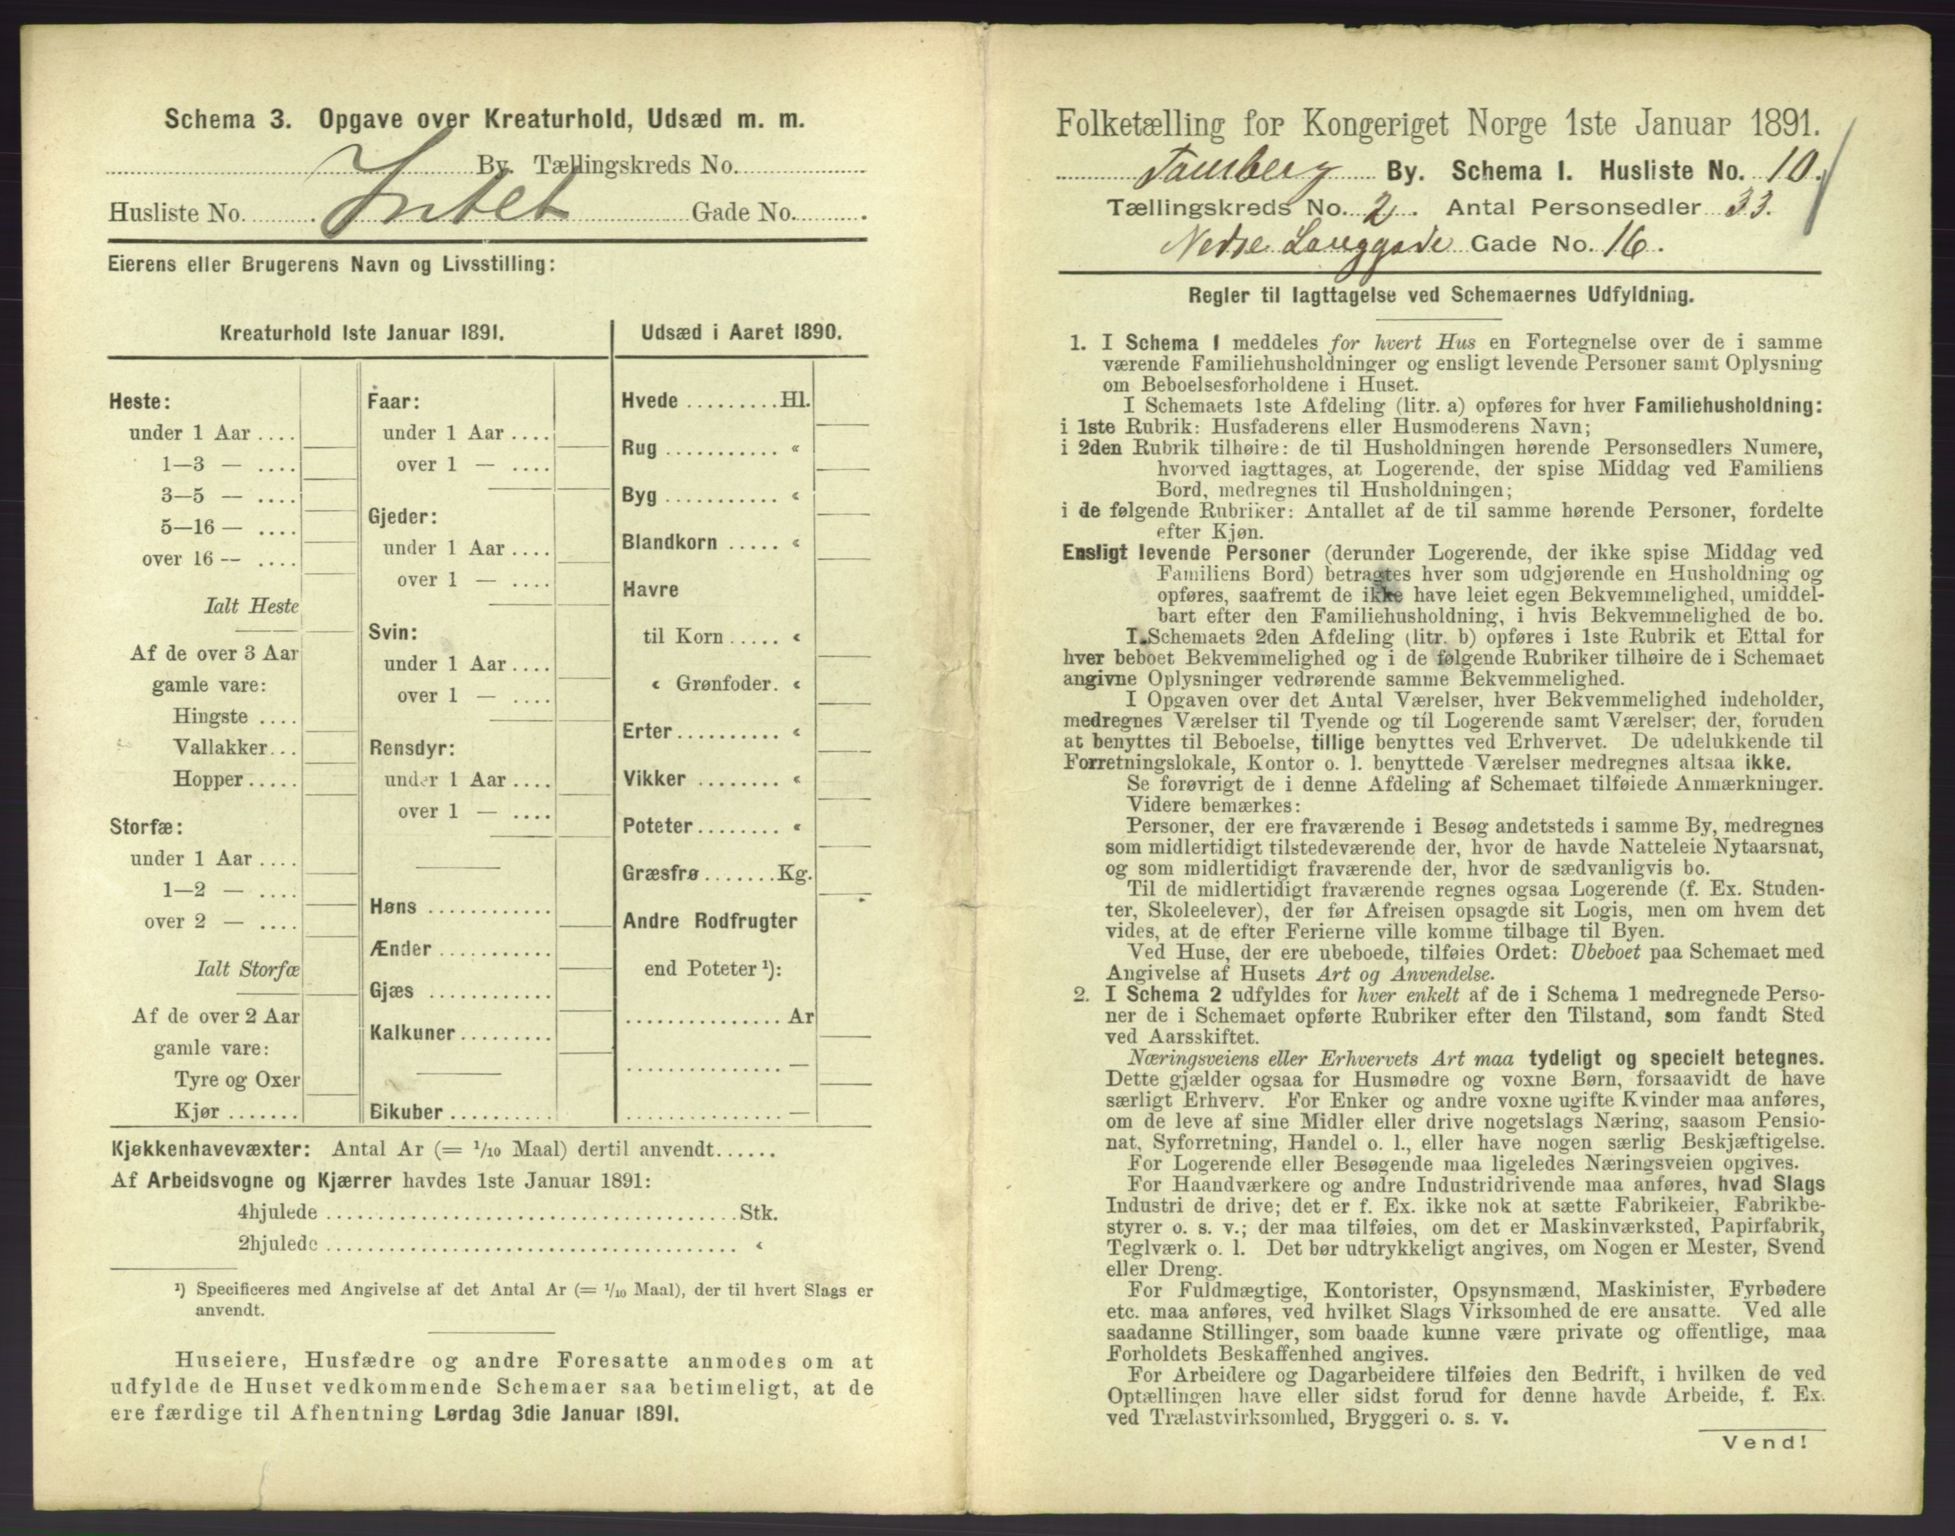 Schema 3. Opgave over Kreaturhold, Udsæd m. m.
By. Tællingskreds No.
Husliste No. Intet Gade No.
Eierens eller Brugerens Navn og Livsstilling:
Kreaturhold 1ste Januar 1891.
Heste:
under 1 Aar ....
1—3 — ....
3—5 — ....
5—16 — ....
over 16 — ....
Ialt Heste
Af de over 3 Aar
gamle vare:
Hingste ....
Vallakker...
Hopper.....
Storfæ:
under 1 Aar ....
1—2 — ....
over 2 — ....
Ialt Storfæ
Af de over 2 Aar
gamle vare:
Tyre og Oxer
Kjør .......
Faar:
under 1 Aar ....
over 1 — ....
Gjeder:
under 1 Aar ....
over 1 — ....
Svin:
under 1 Aar ....
over 1 — ....
Rensdyr:
under 1 Aar ....
over 1 — ....
Høns ............
Ænder ...........
Gjæs ............
Kalkuner.........
Bikuber..........
Udsæd i Aaret 1890.
Hvede .........Hl.
Rug ........... «
Byg ........... «
Blandkorn ..... «
Havre
til Korn ..... «
« Grønfoder. «
Erter.......... «
Vikker ........ «
Poteter........ «
Græsfrø.......Kg.
Andre Rodfrugter
end Poteter ¹):
............... Ar
............... —
............... —
Kjøkkenhavevæxter: Antal Ar (= 1/10 Maal) dertil anvendt......
Af Arbeidsvogne og Kjærrer havdes 1ste Januar 1891:
4hjulede ........................................Stk.
2hjulede ........................................ «
¹) Specificeres med Angivelse af det Antal Ar (= 1/10 Maal), der til hvert Slags er
anvendt.
Huseiere, Husfædre og andre Foresatte anmodes om at
udfylde de Huset vedkommende Schemaer saa betimeligt, at de
ere færdige til Afhentning Lørdag 3die Januar 1891.
Folketælling for Kongeriget Norge 1ste Januar 1891.
Tønsberg By. Schema 1. Husliste No. 10.
Tællingskreds No. 2. Antal Personsedler 33.
Nedre Langgade Gade No. 16.
Regler til Iagttagelse ved Schemaernes Udfyldning.
1. I Schema 1 meddeles for hvert Hus en Fortegnelse over de i samme
værende Familiehusholdninger og ensligt levende Personer samt Oplysning
om Beboelsesforholdene i Huset.
I Schemaets 1ste Afdeling (litr. a) opføres for hver Familiehusholdning:
i 1ste Rubrik: Husfaderens eller Husmoderens Navn;
i 2den Rubrik tilhøire: de til Husholdningen hørende Personsedlers Numere,
hvorved iagttages, at Logerende, der spise Middag ved Familiens
Bord, medregnes til Husholdningen;
i de følgende Rubriker: Antallet af de til samme hørende Personer, fordelte
efter Kjøn.
Ensligt levende Personer (derunder Logerende, der ikke spise Middag ved
Familiens Bord) betragtes hver som udgjørende en Husholdning og
opføres, saafremt de ikke have leiet egen Bekvemmelighed, umiddel-
bart efter den Familiehusholdning, i hvis Bekvemmelighed de bo.
I Schemaets 2den Afdeling (litr. b) opføres i 1ste Rubrik et Ettal for
hver beboet Bekvemmelighed og i de følgende Rubriker tilhøire de i Schemaet
angivne Oplysninger vedrørende samme Bekvemmelighed.
I Opgaven over det Antal Værelser, hver Bekvemmelighed indeholder,
medregnes Værelser til Tyende og til Logerende samt Værelser, der, foruden
at benyttes til Beboelse, tillige benyttes ved Erhvervet. De udelukkende til
Forretningslokale, Kontor o. l. benyttede Værelser medregnes altsaa ikke.
Se forøvrigt de i denne Afdeling af Schemaet tilføiede Anmærkninger.
Videre bemærkes:
Personer, der ere fraværende i Besøg andetsteds i samme By, medregnes
som midlertidigt tilstedeværende der, hvor de havde Natteleie Nytaarsnat,
og som midlertidigt fraværende der, hvor de sædvanligvis bo.
Til de midlertidigt fraværende regnes ogsaa Logerende (f. Ex. Studen-
ter, Skoleelever), der før Afreisen opsagde sit Logis, men om hvem det
vides, at de efter Ferierne ville komme tilbage til Byen.
Ved Huse, der ere ubeboede, tilføies Ordet: Ubeboet paa Schemaet med
Angivelse af Husets Art og Anvendelse.
2. I Schema 2 udfyldes for hver enkelt af de i Schema 1 medregnede Perso-
ner de i Schemaet opførte Rubriker efter den Tilstand, som fandt Sted
ved Aarsskiftet.
Næringsveiens eller Erhvervets Art maa tydeligt og specielt betegnes.
Dette gjælder ogsaa for Husmødre og voxne Børn, forsaavidt de have
særligt Erhverv. For Enker og andre voxne ugifte Kvinder maa anføres,
om de leve af sine Midler eller drive nogetslags Næring, saasom Pensio-
nat, Syforretning, Handel o. l., eller have nogen særlig Beskjæftigelse.
For Logerende eller Besøgende maa ligeledes Næringsveien opgives.
For Haandværkere og andre Industridrivende maa anføres, hvad Slags
Industri de drive; det er f. Ex. ikke nok at sætte Fabrikeier, Fabrikbe-
styrer o. s. v.; der maa tilføies, om det er Maskinværksted, Papirfabrik,
Teglværk o. l. Det bør udtrykkeligt angives, om Nogen er Mester, Svend
eller Dreng.
For Fuldmægtige, Kontorister, Opsynsmænd, Maskinister, Fyrbødere
etc. maa anføres, ved hvilket Slags Virksomhed de ere ansatte. Ved alle
saadanne Stillinger, som baade kunne være private og offentlige, maa
Forholdets Beskaffenhed angives.
For Arbeidere og Dagarbeidere tilføies den Bedrift, i hvilken de ved
Optællingen have eller sidst forud for denne havde Arbeide, f. Ex.
ved Trælastvirksomhed, Bryggeri o. s. v.
Vend!